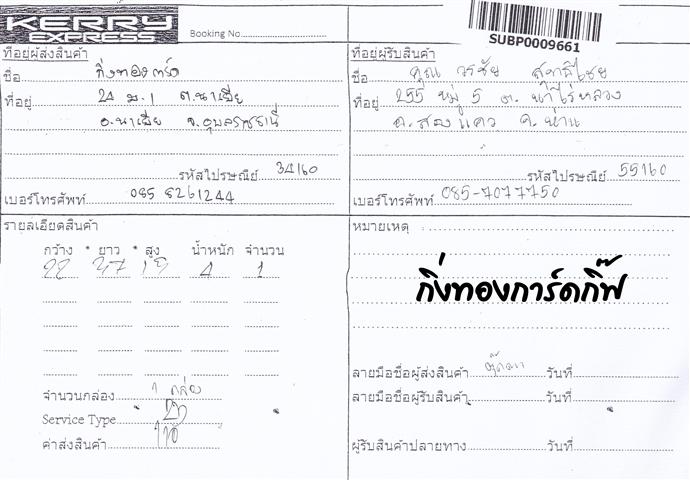 KERRY
EXPRESS
Booking No
SUBP0009661
ที่อยู่ผู้ส่งสินค้า
ชื่อ กิ่งทองการ์ด
ที่อยู่ 24 ม.1 ต.นาเยีย
อ.นาเยีย จ.อุบลราชธานี
รหัสไปรษณีย์ 34160
เบอร์โทรศัพท์ 085 8261244
ที่อยู่ผู้รับสินค้า
ชื่อ คุณ วรชัย
ที่อยู่ 255 หมู่ 5 ต.
อ. จ. น่าน
รหัสไปรษณีย์ 55160
เบอร์โทรศัพท์ 085-7077750
รายละเอียดสินค้า
กว้าง * ยาว * สูง น้ำหนัก จำนวน
22 37 4 1
จำนวนกล่อง 1 กล่อง
Service Type
ค่าส่งสินค้า
หมายเหตุ
กิ่งทองการ์ดกิ๊ฟ
ลายมือชื่อผู้ส่งสินค้า วันที่
ลายมือชื่อผู้รับสินค้า วันที่
ผู้รับสินค้าปลายทาง วันที่